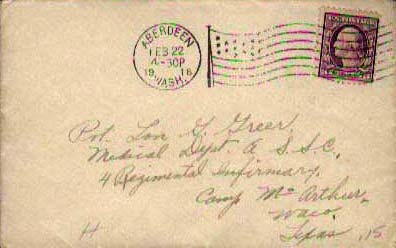 ABERDEEN
FEB 22
4-30P
1918
WASH.
Pvt. Lon G. Greer.
Medical Dept. A S. S. C.
4 Regimental Infirmary,
Camp McArthur,
Waco,
Texas
H